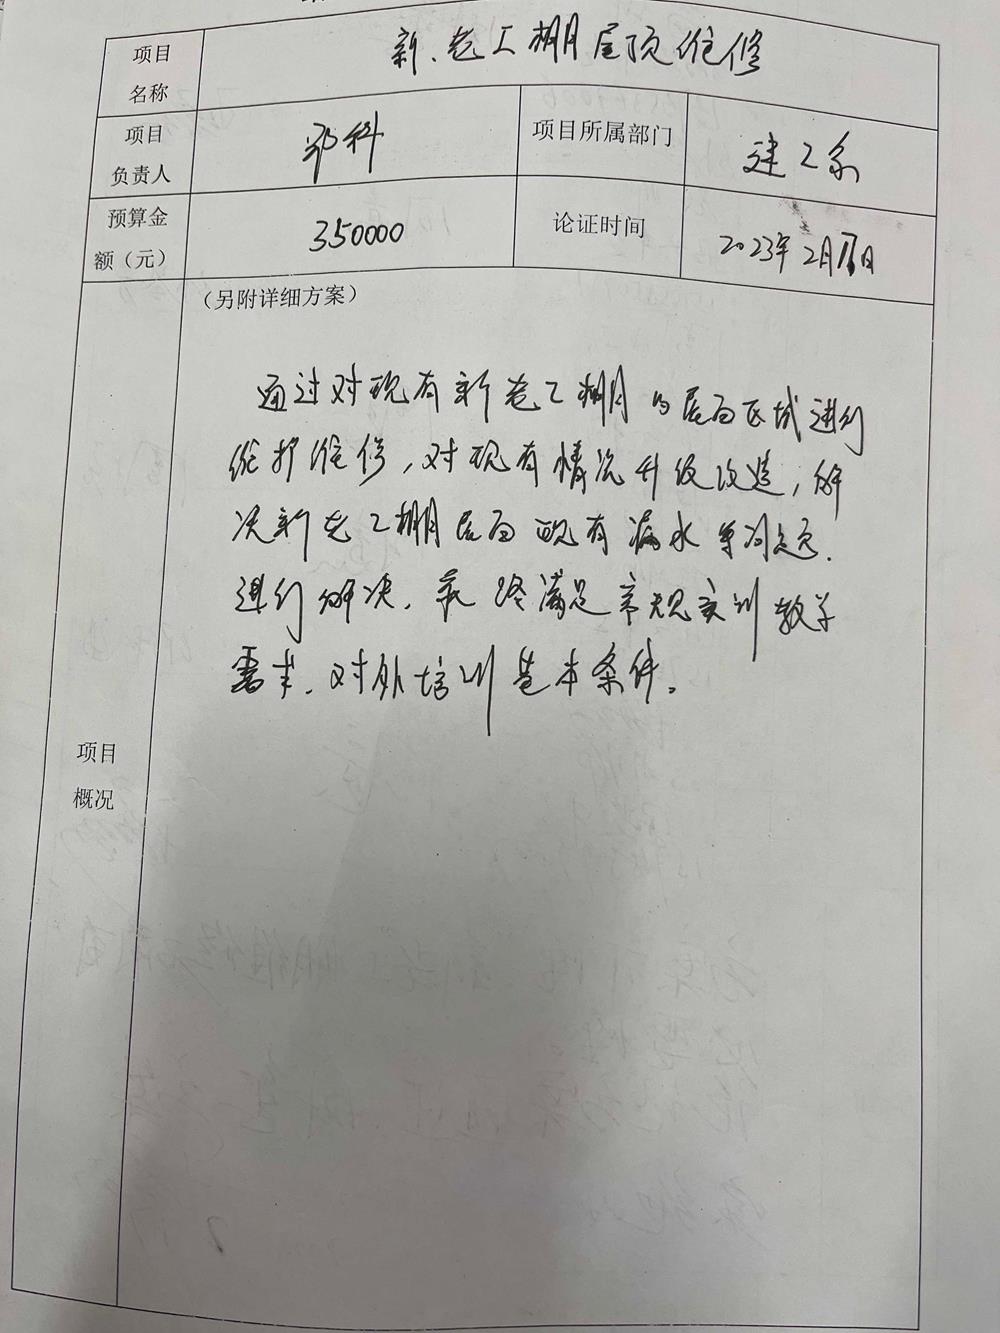 项目
名称
新、老工棚屋顶维修
项目
负责人
邓科
项目所属部门
建工系
预算金
额（元）
350000
论证时间
2023年2月日
（另附详细方案）
通过对现有新老工棚的屋面区域进行
维护维修，对现有情况升级改造，解
决新老工棚屋面现有漏水等问题.
进行解决，最终满足常规实训教学
需求、对外培训基本条件。
项目
概况